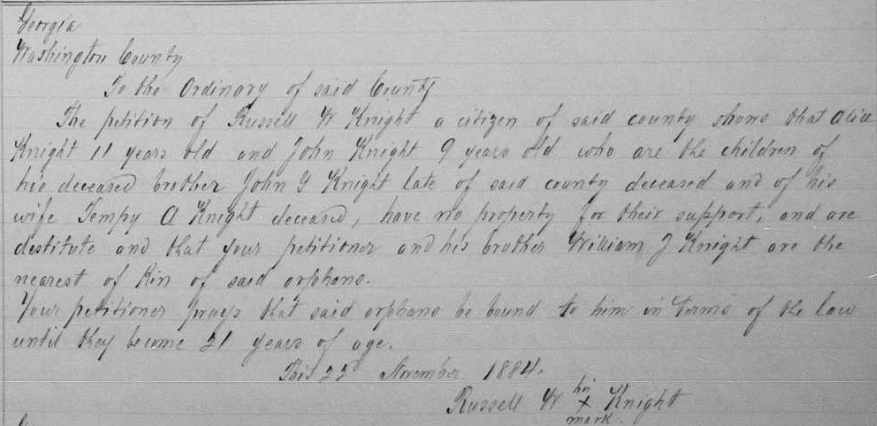 Georgia
Washington County
To the Ordinary of said County
The petition of Russell W Knight a citizen of said county shows that
Knight 11 years old and John Knight 9 years old who are the children of
his deceased brother John G Knight late of said county deceased and of his
wife Tempy A Knight deceased, have no property for their support, and are
destitute and that your petitioner and his brother William J Knight are the
nearest of Kin of said orphans.
Your petitioner prays that said orphans be bound to him in terms of the law
until they become 21 years of age.
This 22 November 1884.
Russell W his x mark Knight